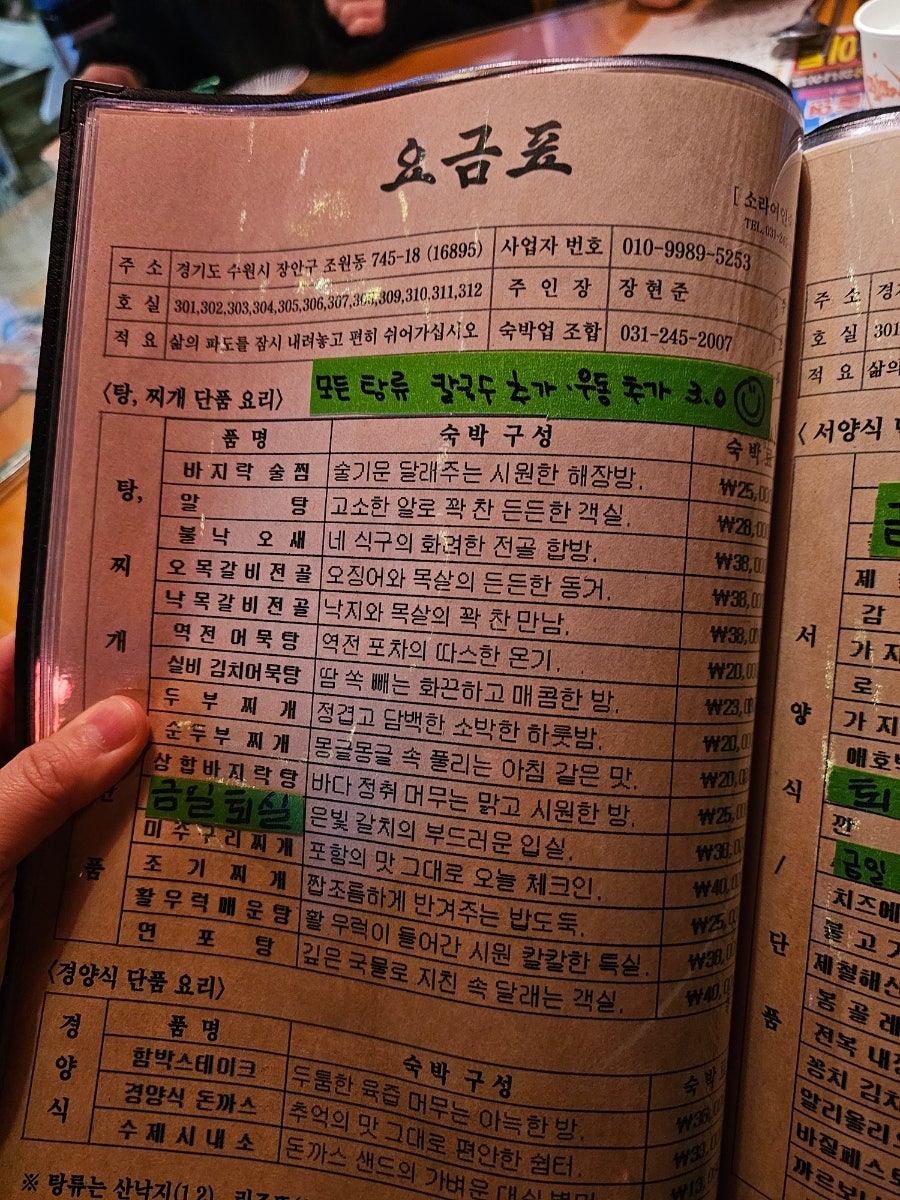 요금표
[ 소라여인
TEL. 031-24
주 소 경기도 수원시 장안구 조원동 745-18 (16895) 사업자 번호 010-9989-5253
호 실 301,302,303,304,305,306,307,308,309,310,311,312 주 인 장 장현준
적 요 삶의 파도를 잠시 내려놓고 편히 쉬어가십시오 숙박업 조합 031-245-2007
<탕, 찌개 단품 요리> 모든 탕류 칼국수 추가·우동 추가 3.0
탕, 찌 개 단 품
품 명 숙박 구성 숙박
바지락 술찜 술기운 달래주는 시원한 해장방. ₩25,00
알 탕 고소한 알로 꽉 찬 든든한 객실. ₩28,00
불 낙 오 새 네 식구의 화려한 전골 합방. ₩38,00
오목갈비전골 오징어와 목살의 든든한 동거. ₩38,00
낙목갈비전골 낙지와 목살의 꽉 찬 만남. ₩38,0
역전 어묵탕 역전 포차의 따스한 온기. ₩20,00
실비 김치어묵탕 땀 쏙 빼는 화끈하고 매콤한 방. ₩23,00
두 부 찌 개 정겹고 담백한 소박한 하룻밤. ₩20,00
순두부 찌개 몽글몽글 속 풀리는 아침 같은 맛. ₩20,00
상합바지락탕 바다 정취 머무는 맑고 시원한 방. ₩25,00
금일퇴실 은빛 갈치의 부드러운 입실. ₩38,0
미수구리찌개 포항의 맛 그대로 오늘 체크인. ₩40,0
조 기 찌 개 짭조름하게 반겨주는 밥도둑. ₩25,0
활우럭매운탕 활 우럭이 들어간 시원 칼칼한 특실. ₩38,0
연 포 탕 깊은 국물로 지친 속 달래는 객실. ₩40,0
<경양식 단품 요리>
경 양 식
품 명 숙박 구성 숙 박
함박스테이크 두툼한 육즙 머무는 아늑한 방. ₩36,0
경양식 돈까스 추억의 맛 그대로 편안한 쉼터. ₩33,0
수제시내소 돈까스 샌드의 가벼운 대실 ₩13,0
※ 탕류는 산낙지(1.2)
주 소 경기
호 실 301
적 요 삶의
< 서양식
서 양 식 / 단 품
금
제
감
가 지
로
가 지
애호박
퇴
깐
금일
치즈에
불 고 기
제철해산
봉 골 레
전복 내장
꽁치 김치
알리올리오
바질페스토
까르보나